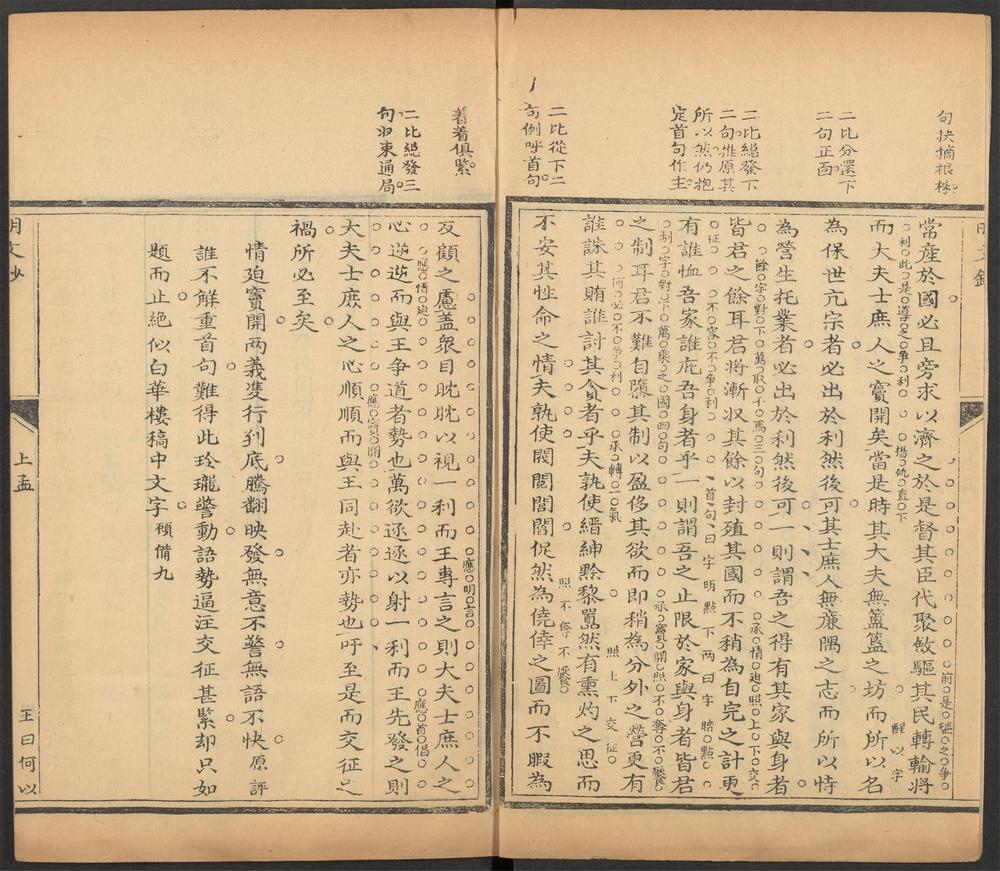 句抉摘根株
二比分還下
二句正面
二比總發下
二句推原其
所以然仍抱
定首句作主
二比從下二
句倒呼首句
常產於國必且旁求以濟之於是督其臣代聚斂驅其民轉輸將
前是驅之爭
利此是導之爭利
場仇直下
醒以字
而大夫士庶人之竇開矣當是時其大夫無簠簋之坊而所以名
為保世亢宗者必出於利然後可其士庶人無廉隅之志而所以恃
為營生托業者必出於利然後可一則謂吾之得有其家與身者
餘字對下萬取千焉三句
承情迫照上下交
征
不容不爭利
皆君之餘耳君將漸収其餘以封殖其國而不稍為自完之計更
首句曰字明點下两曰字暗點
有誰恤吾家誰庇吾身者乎一則謂吾之止限於家與身者皆君
制字對下萬乘之國四句
承竇開照不奪不饜
之制耳君不難自隳其制以盈侈其欲而即稍為分外之營更有
何必不爭利
承轉一氣
照上下交征
誰誅其賄誰討其貪者乎夫孰使縉紳黔黎囂然有熏灼之思而
照不奪不饜
不安其性命之情夫孰使閥閱閭閻促然為僥倖之圖而不暇為
着着俱緊
二比總發三
句以束通局
反顧之慮盖衆目眈眈以視一利而王專言之則大夫士庶人之
應情迫
應明言
應首倡
心逆逆而與王争道者勢也萬欲逐逐以射一利而王先發之則
大夫士庶人之心順順而與王同赴者亦勢也吁至是而交征之
應竇開
禍所必至矣
情迫竇開两義雙行到底騰翻映發無意不警無語不快原評
誰不解重首句難得此玲瓏警動語勢逼注交征甚緊却只如
題而止絕似白華樓稿中文字 顧備九
明文鈔
上孟
王曰何以